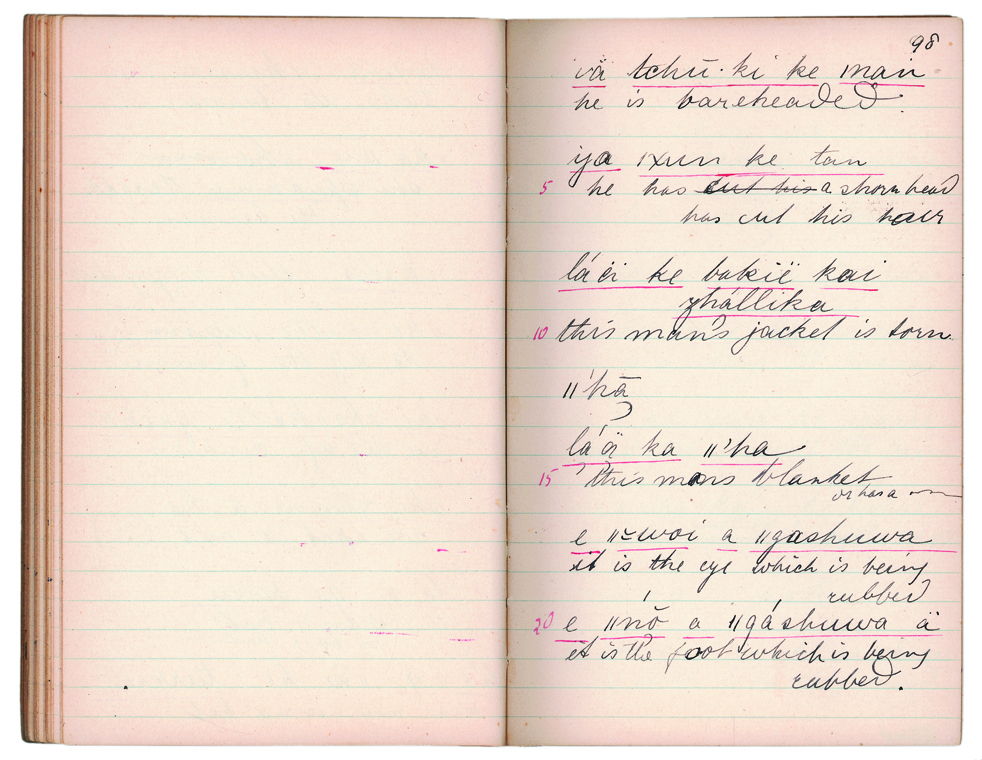 98
iṽä tchū·ki ke man
he is bareheaded.
iya ıxun ke tan
5 he has cut his a shorn head
has cut his hair
láëi ke bakië kai
zhállika
10 this man's jacket is torn.
ǁ'hā
lá'öï ka ǁ'ha
15 this mans blanket
or has a
e a ǁgashuwa
it is the eye which is being
rubbed
20 e ǁnŏ a ǁgáshuwa ä
it is the foot which is being
rubbed.